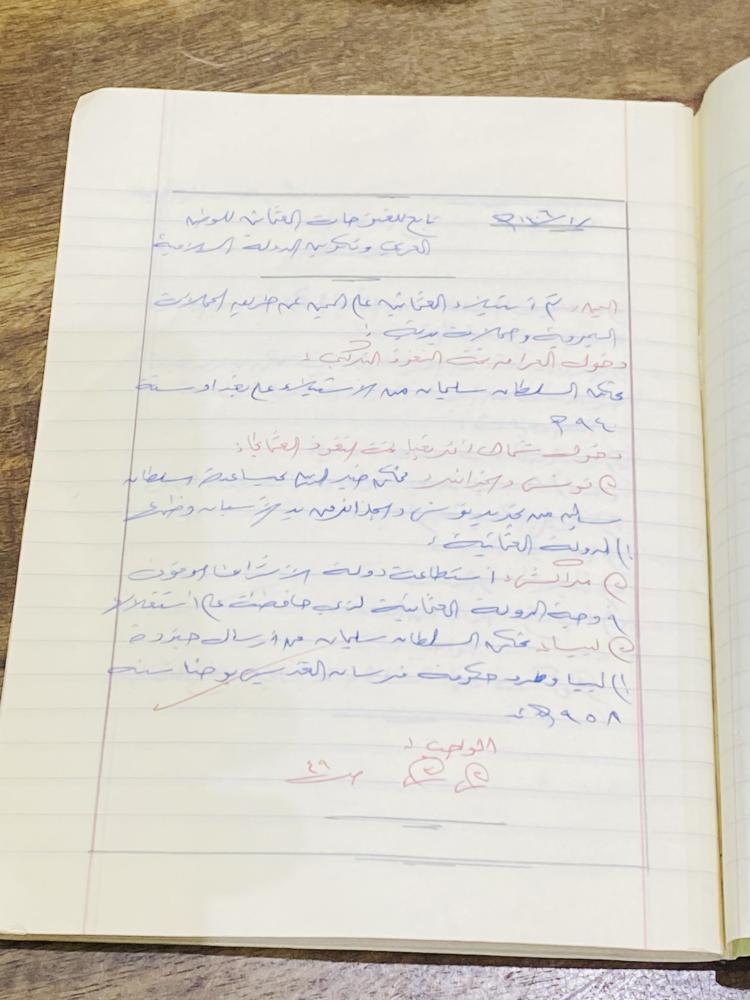 تابع للفتوحات العثمانية للوطن
العربي وتكوين الدولة السلامية
اليمن: تم استيلاء العثمانية على اليمن عن طريق الحملات
البحرية وحملات برية:
دخول العراق تحت النفوذ التركي:
تمكن السلطان سليمان من الاستيلاء على بغداد سنة
٩٤٠هـ
دخول شمال افريقيا تحت النفوذ العثماني:
تونس والجزائر: تمكن خير الدين بمساعدة السلطان
سليم من تحرير تونس والجزائر من يد الأسبان وضمها
إلى الدولة العثمانية:
مراكش: استطاعت دولة الأشراف الوقوف
في وجه الدولة العثمانية لذي حافظت على استقلالها
ليبيا: تمكن السلطان سليمان من ارسال حملة
إلى ليبيا وطرد حكومة فرسان القديس يوحنا سنة
٩٥٨هـ:
الواجب:
ص ٤٩